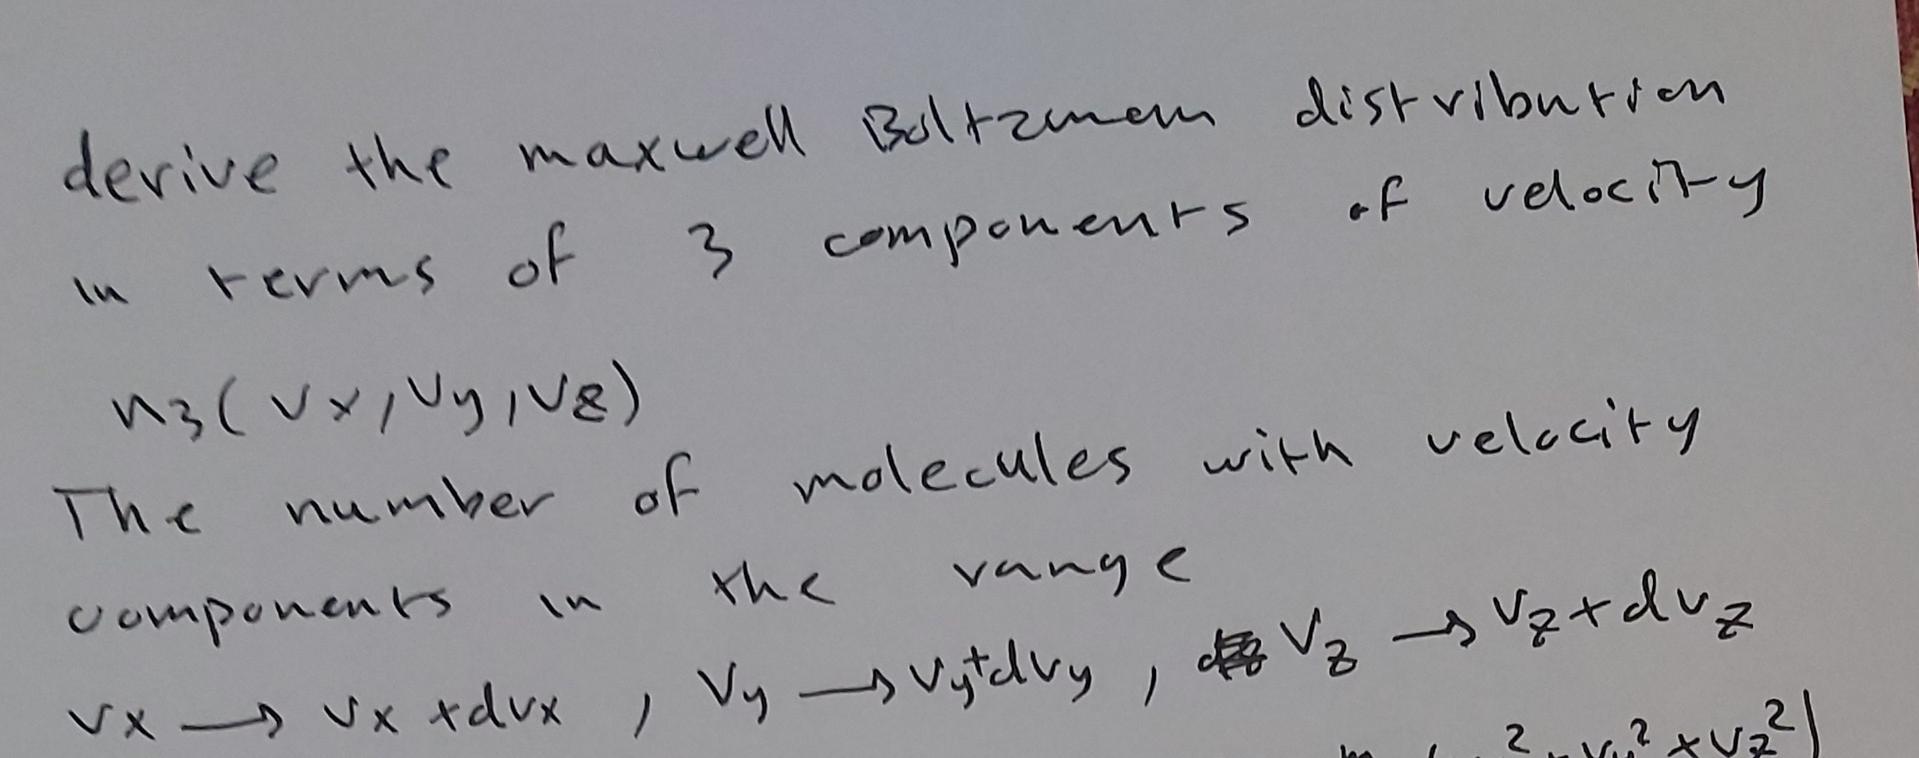 derive the maxwell Boltzman distribution
in terms of 3 components of velocity
n₃(vx, vy, vz)
The number of molecules with velocity
components in the range
vx → vx + dvx , vy → vy + dvy , vz → vz + dvz
m (v² + vy² + vz²)